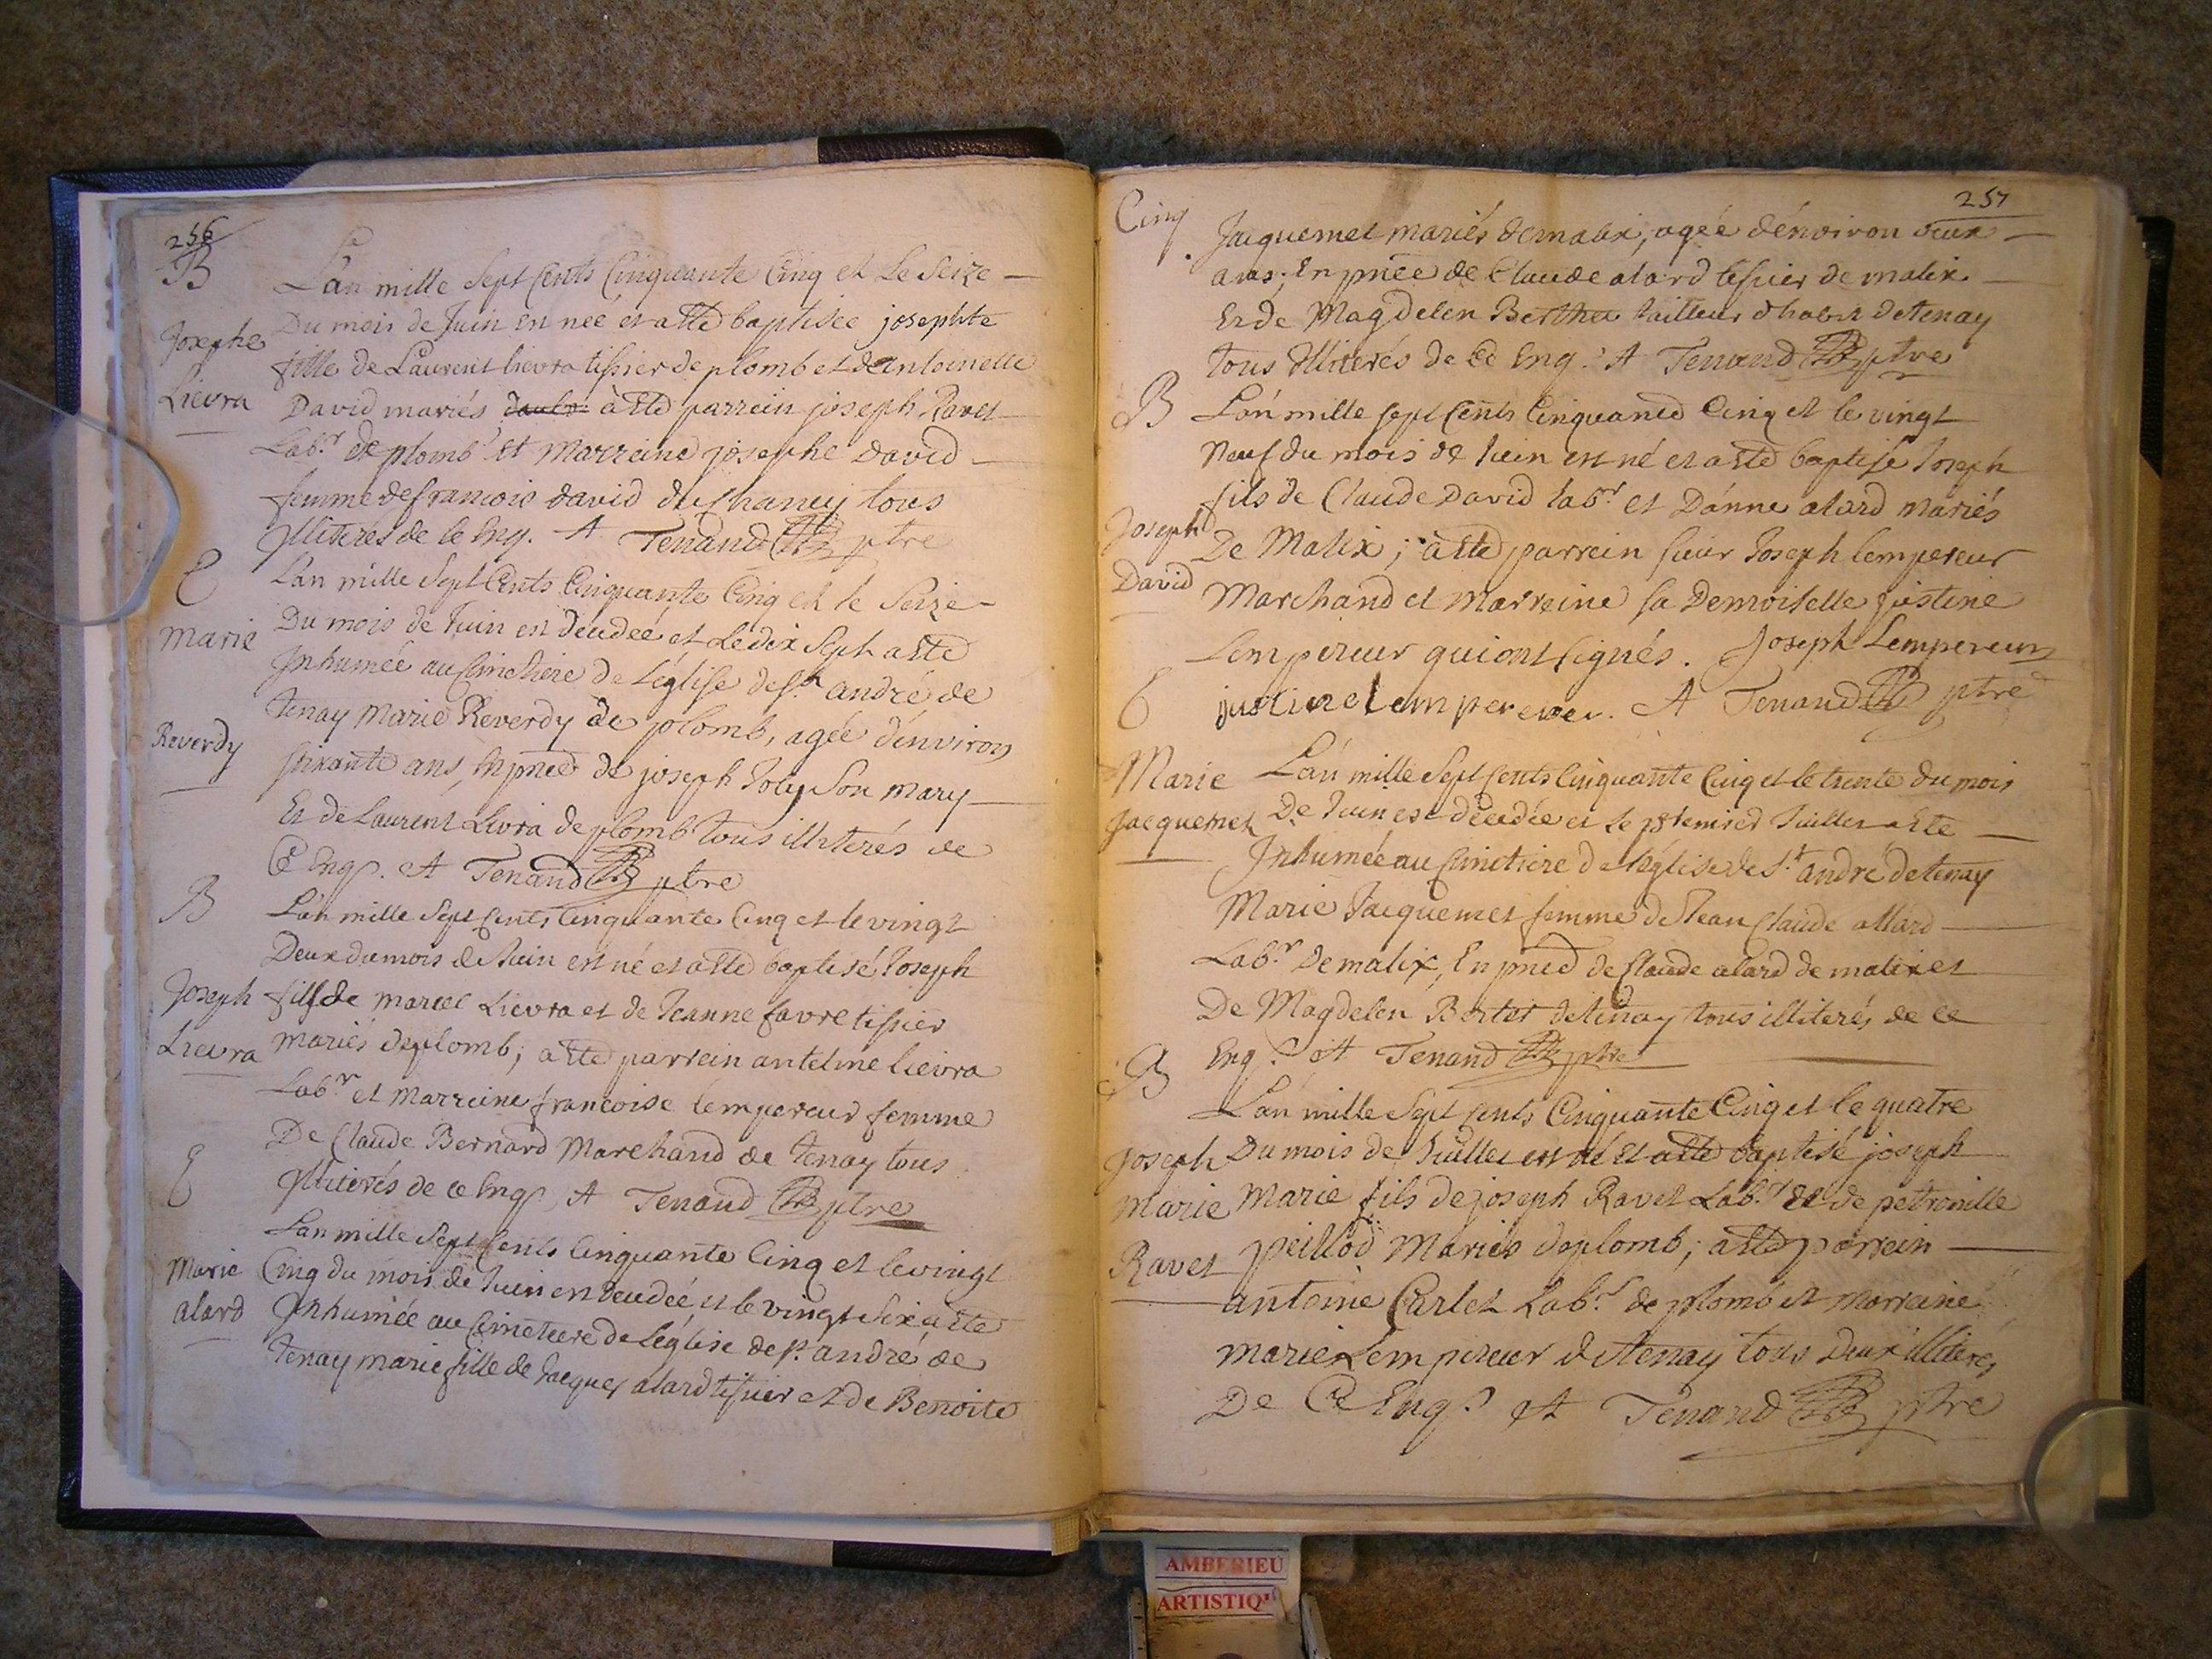 256
B
L'an mille Sept Cents Cinquante Cinq et Le Seize
Josephe
Du mois de Juin est née et a Eté baptisée josephte
fille de Laurent lievra tissier de plomb et de antoinette
Lievra
David mariés à Eté parrein joseph Ravet
Lab.r de plomb et Marreine josephe David
femme de francois david du Chaney tous
Illiterés de ce Enq. A Tenand ptre
E
L'an mille Sept Cents Cinquante Cinq et le Seize
Marie
Du mois de Juin est décedeé et Le dix Sept a eté
Inhumée au Cimetiere de L'église de s.t andré de
Reverdy
tenay Marie Reverdy de plomb, agée d'environ
soixante ans, En pnce de joseph Joly Son mary
Et de Laurent Livra de plomb tous illiterés de
Ce Enq. A Tenand ptre
B
L'an mille Sept Cents Cinquante Cinq et le vingt
Deux du mois de Juin est né et a eté baptisé Joseph
Joseph
fils de marcel Lievra et de Jeanne favre tissier
Lievra
mariés de plomb; a eté parrein antelme lievra
Lab.r et Marreine francoise lempereur femme
De Claude Bernard Marchand de tenay tous
Illiterés de ce Enq. A Tenand ptre
E
L'an mille Sept Cents Cinquante Cinq et le vingt
Marie
Cinq du mois de Juin est decedeé et le vingt Six a eté
alard
Inhumée au Cimetiere de L'église de s.t andré de
tenay marie fille de Jacques alard tissier et de Benoite
257
Cinq
Jacquemet mariés de malix, agée d'énviron deux
ans; En pnce de Claude alard tissier de malix
Et de Magdelen Berthet tailleur d'habit de tenay
tous Illiterés de ce Enq. A Tenand ptre
B
L'an mille sept Cents Cinquante Cinq et le vingt
Neuf du mois de Juin est né et a eté baptisé Joseph
fils de Claude David lab.r et D'anne alard mariés
Joseph
De Malix; à eté parrein sieur Joseph lempereur
David
Marchand et Marreine sa Demoiselle justine
Lempereur qui ont signés. Joseph Lempereur
E
justine lempereur. A Tenand ptre
Marie
L'an mille Sept Cents Cinquante Cinq et le trente du mois
Jacquemet
De Juin est décedée et le premier Juillet a eté
Inhumée au Cimetiere de l'église de S.t andré de tenay
Marie Jacquemet femme de Jean Claude allard
Lab.r De malix, En pnce de Claude alard de malix et
De Magdelen Bertet de tenay tous illiterés de ce
Enq. A Tenand ptre
B
L'an mille Sept Cents Cinquante Cinq et le quatre
Joseph
Du mois de Juillet est né Et a eté baptisé joseph
Marie
Marie fils de joseph Ravet Lab.r et de petronille
Ravet
peillod Mariés de plomb; a eté parrein
antoine Carlet Lab.r de plomb et marreine
marie Lempereur de tenay tous Deux illiteres
De Ce Enq. A Tenand ptre
AMBERIEU
ARTISTIQ